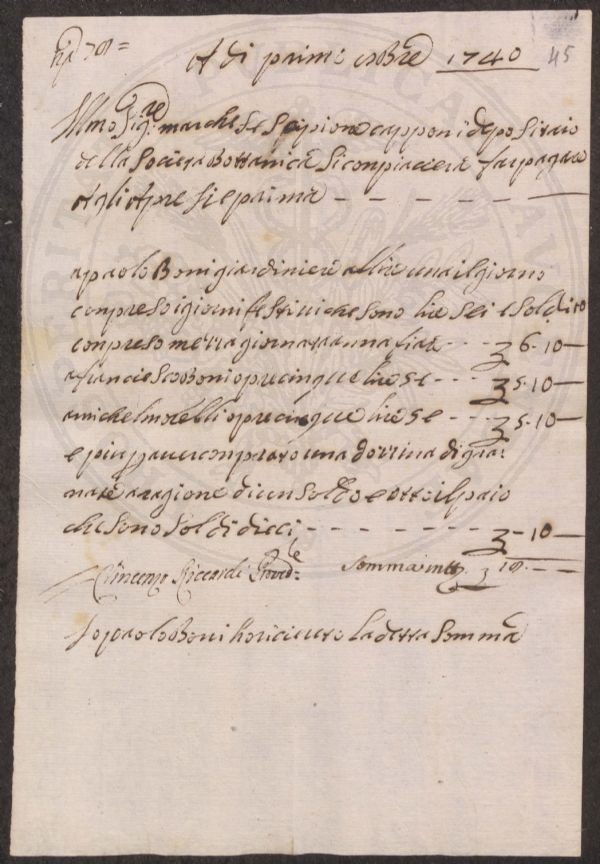 A di primi 8bre 1740
45
Illmo Sigre marchese Scipione capponi depositario
della Società Bottanica Si conpiacerà far pagare
Agli Apresi e prima – – – – – –
a paolo Boni giardiniere a lire una il giorno
conpreso i giorni festivi che sono lire sei e Soldi 10
conpreso mezza giornata 6.10
a francesco Boni opre cinque lire 5.10
a michel morelli opre cinque lire 5.10
e piu p aver conprato una dozzina di gra
nate a ragione di un Soldo e otto il paio
che Sono Soldi dieci – – – – – – –.10
Vincenzo Riccardi Provedre Somma in tto 18.– –
Io paolo Boni ho riceuto la detta Somma